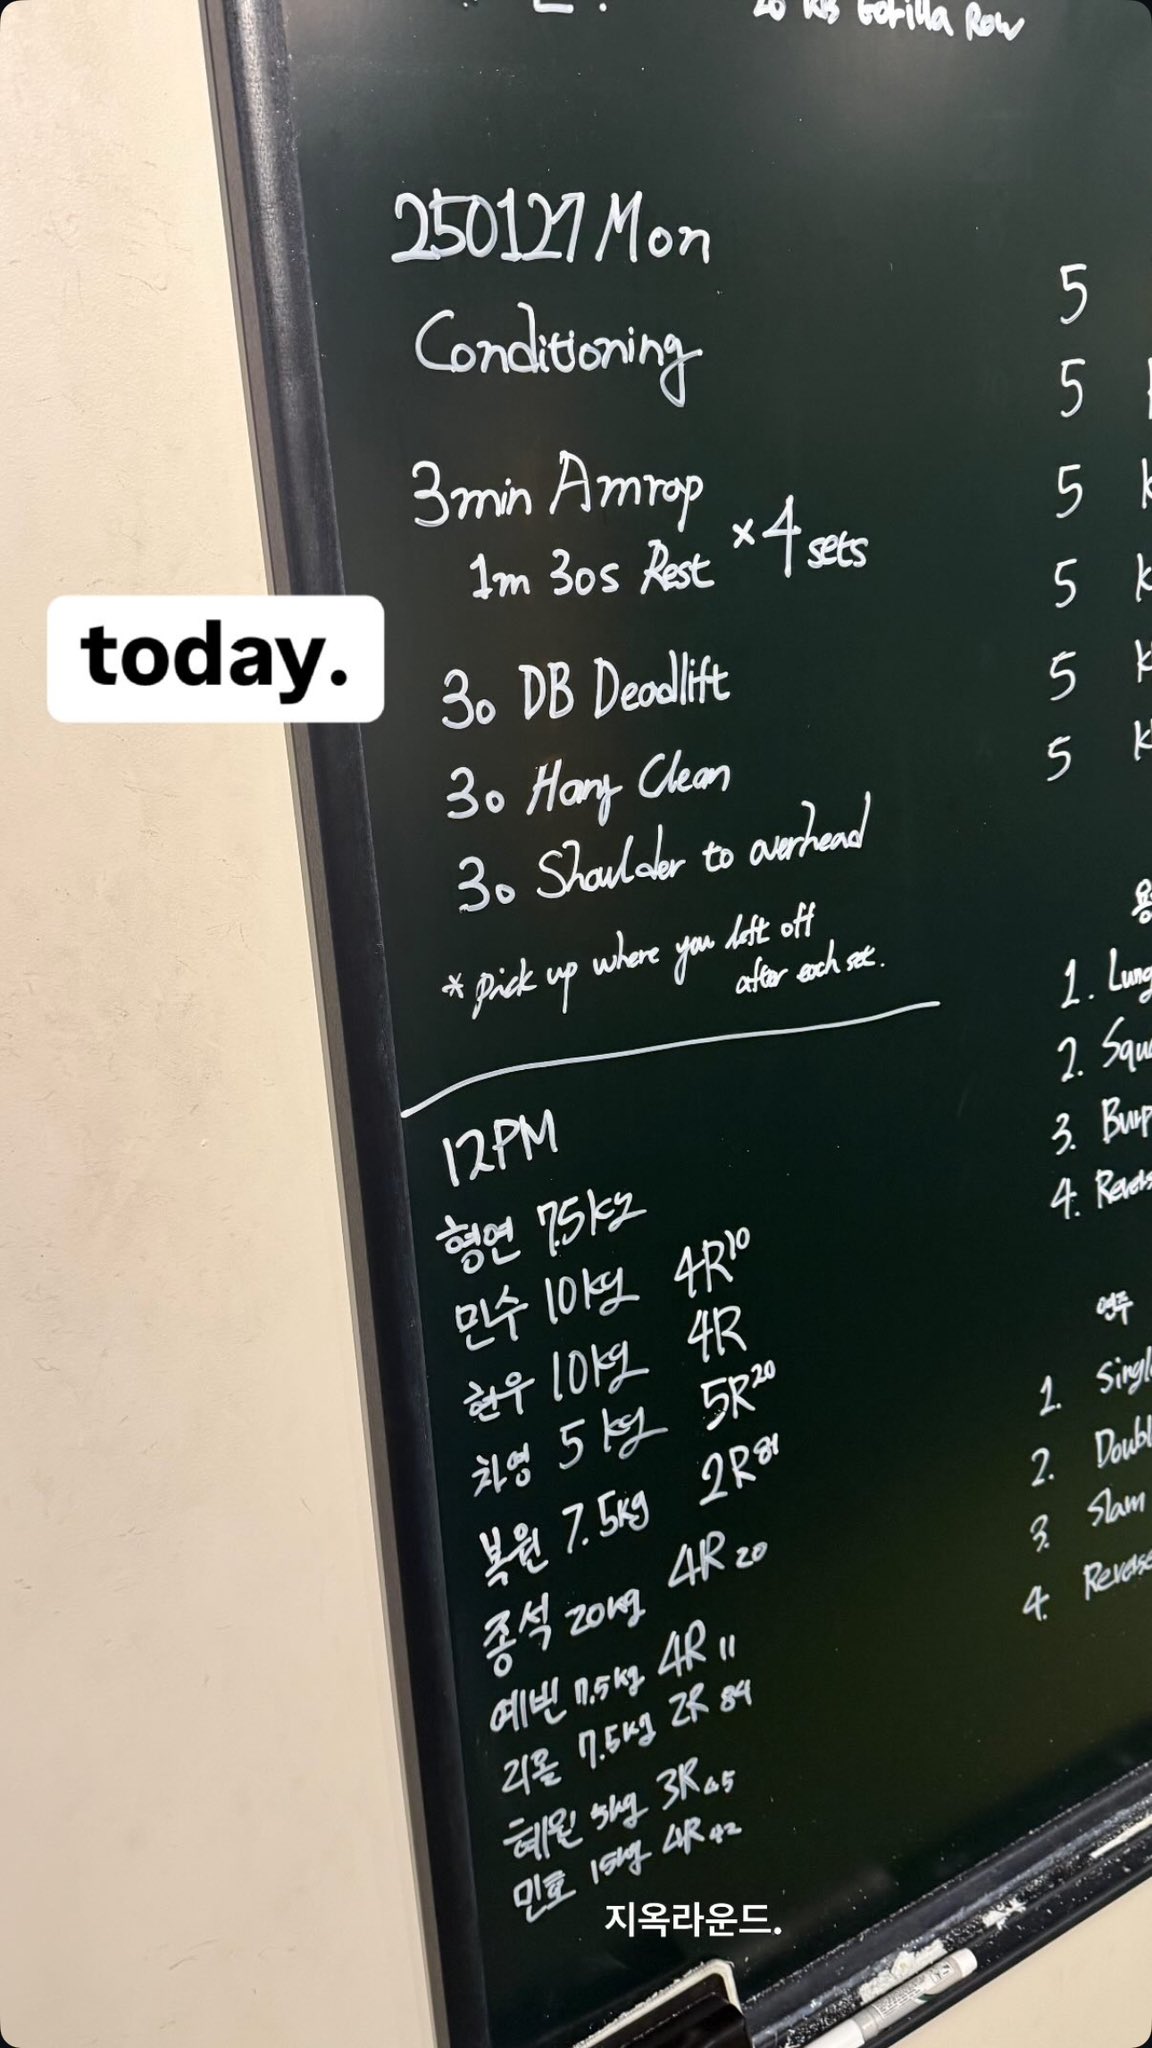 20 KB Gorilla Row
250127 Mon
Conditioning
3min Amrap
1m 30s Rest
×4 sets
30 DB Deadlift
30 Hang Clean
30 Shoulder to overhead
* Pick up where you left off
after each set.
today.
12PM
형연 7.5kg
민수 10kg 4R10
현우 10kg 4R
차영 5kg 5R20
복원 7.5kg 2R81
종석 20kg 4R 20
예빈 7.5kg 4R 11
리올 7.5kg 2R 84
혜원 5kg 3R
민호 15kg 4R 42
지옥라운드.
5
5
5
5
5
5
1.
2.
3.
4.
연주
1.
2.
3. Slam
4. Reverse